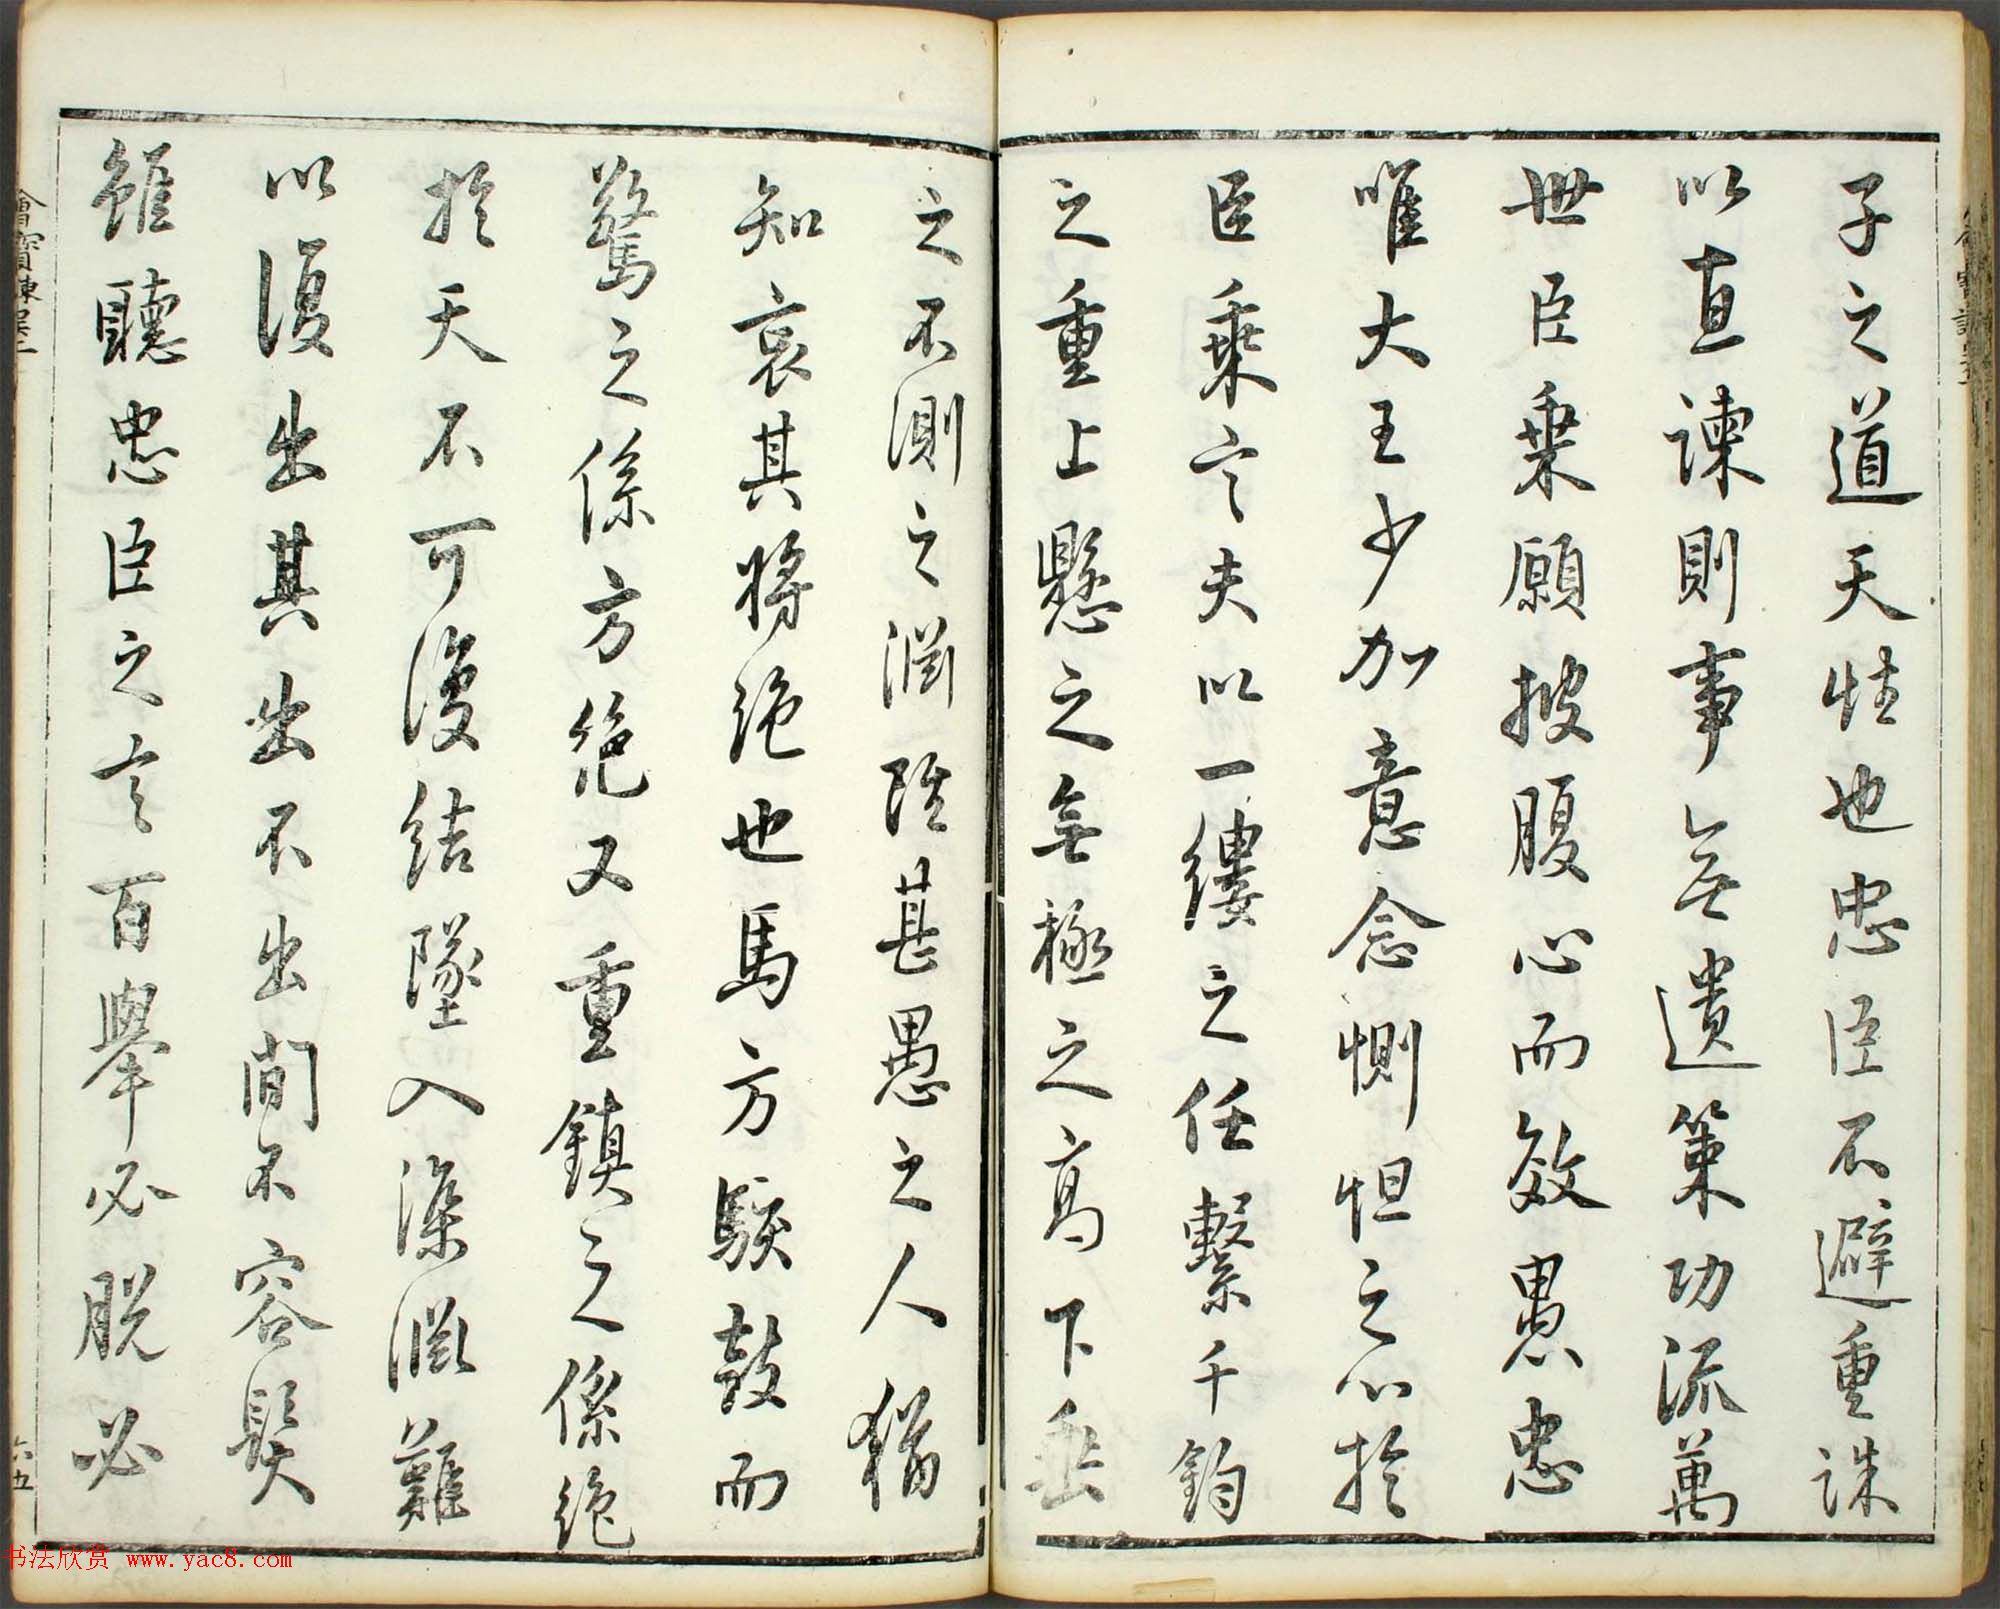 子之道天性也忠臣不避重誅
以直諫則事無遺策功流萬
世臣乗願披腹心而效愚忠
唯大王少加意念惻怛之心於
臣乗言夫以一縷之任繫千鈞
之重上懸之無極之高下垂
之不測之淵雖甚愚之人猶
知哀其將絶也馬方駭鼓而
驚之係方絶又重鎮之係絶
於天不可復結墜入深淵難
以復出其出不出間不容髮
雖聽忠臣之言百舉必脫必
六五
书法欣赏 www.yac8.com